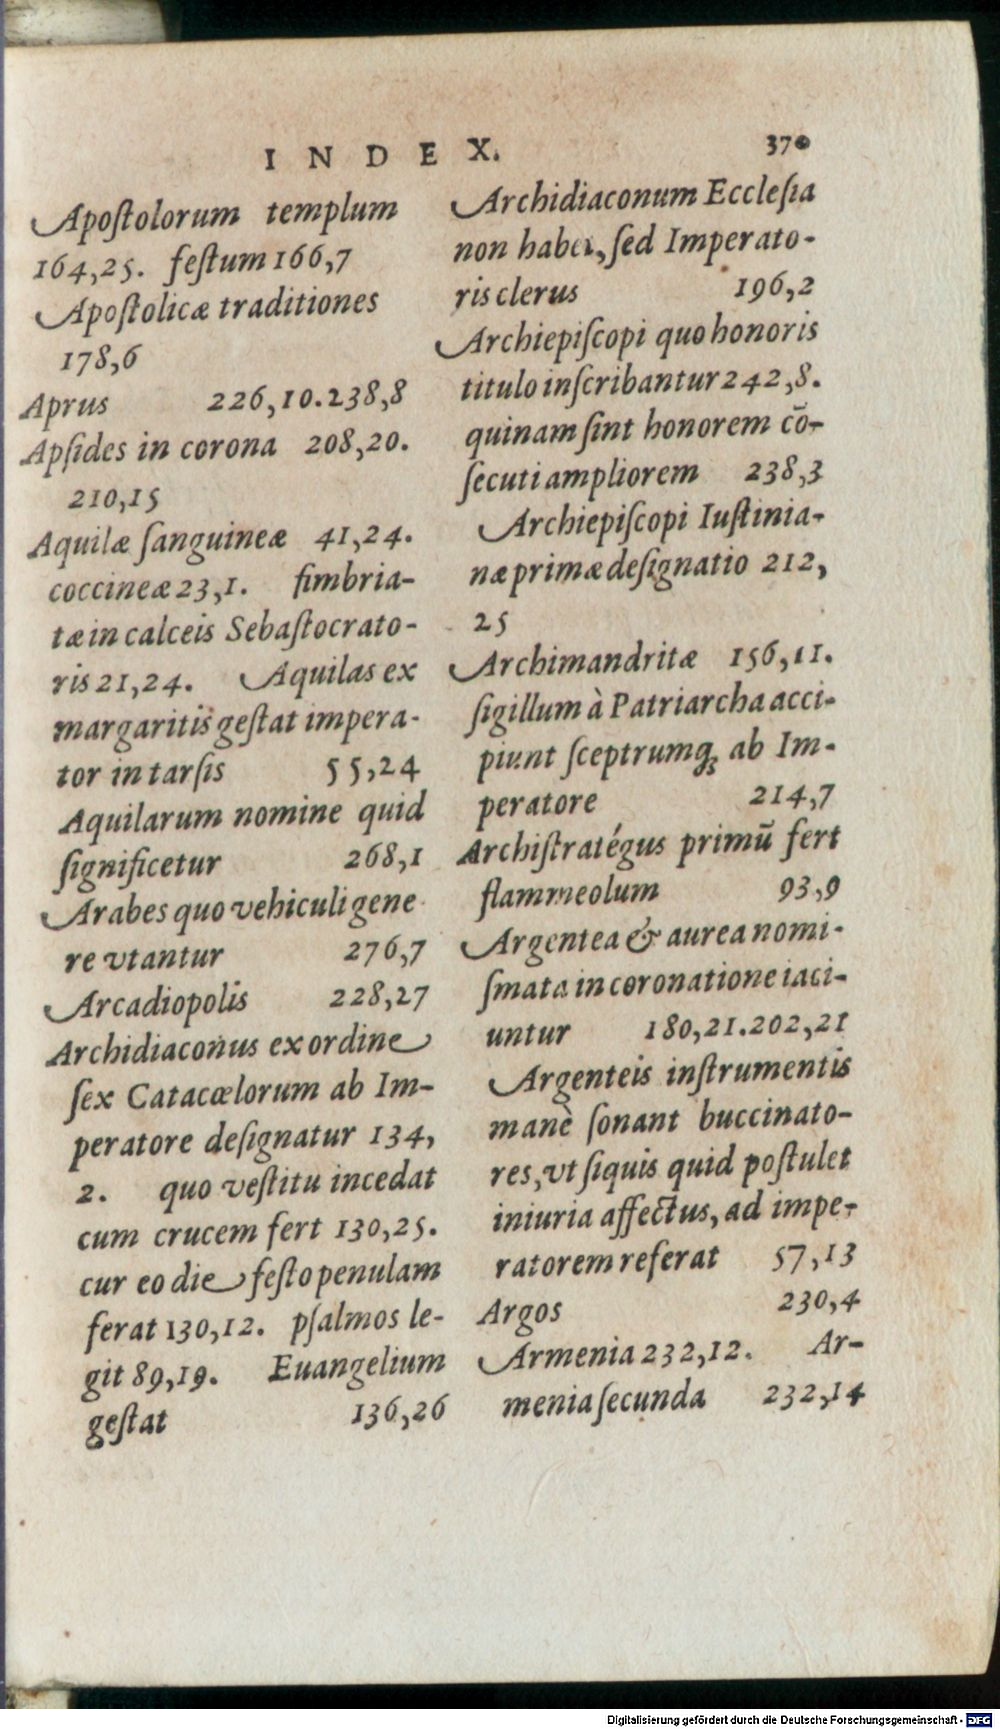 INDEX.
370
Apoſtolorum templum
164,25. feſtum 166,7
Apoſtolicæ traditiones
178,6
Aprus 226,10.238,8
Apſides in corona 208,20.
210,15
Aquilæ ſanguineæ 41,24.
coccineæ 23,1. fimbria-
tæ in calceis Sebaſtocrato-
ris 21,24. Aquilas ex
margaritis geſtat impera-
tor in tarſis 55,24
Aquilarum nomine quid
ſignificetur 268,1
Arabes quo vehiculi gene
re vtantur 276,7
Arcadiopolis 228,27
Archidiaconus ex ordine
ſex Catacœlorum ab Im-
peratore deſignatur 134,
2. quo veſtitu incedat
cum crucem fert 130,25.
cur eo die feſto penulam
ferat 130,12. pſalmos le-
git 89,19. Euangelium
geſtat 136,26
Archidiaconum Eccleſia
non habet, ſed Imperato-
ris clerus 196,2
Archiepiſcopi quo honoris
titulo inſcribantur 242,8.
quinam ſint honorem cō-
ſecuti ampliorem 238,3
Archiepiſcopi Iuſtinia-
næ primæ deſignatio 212,
25
Archimandritæ 156,11.
ſigillum à Patriarcha acci-
piunt ſceptrumq; ab Im-
peratore 214,7
Archiſtratégus primū fert
flammeolum 93,9
Argentea & aurea nomi-
ſmata in coronatione iaci-
untur 180,21.202,21
Argenteis inſtrumentis
manè ſonant buccinato-
res, vt ſiquis quid poſtulet
iniuria affectus, ad impe-
ratorem referat 57,13
Argos 230,4
Armenia 232,12. Ar-
menia ſecunda 232,14
Digitalisierung gefördert durch die Deutsche Forschungsgemeinschaft - DFG